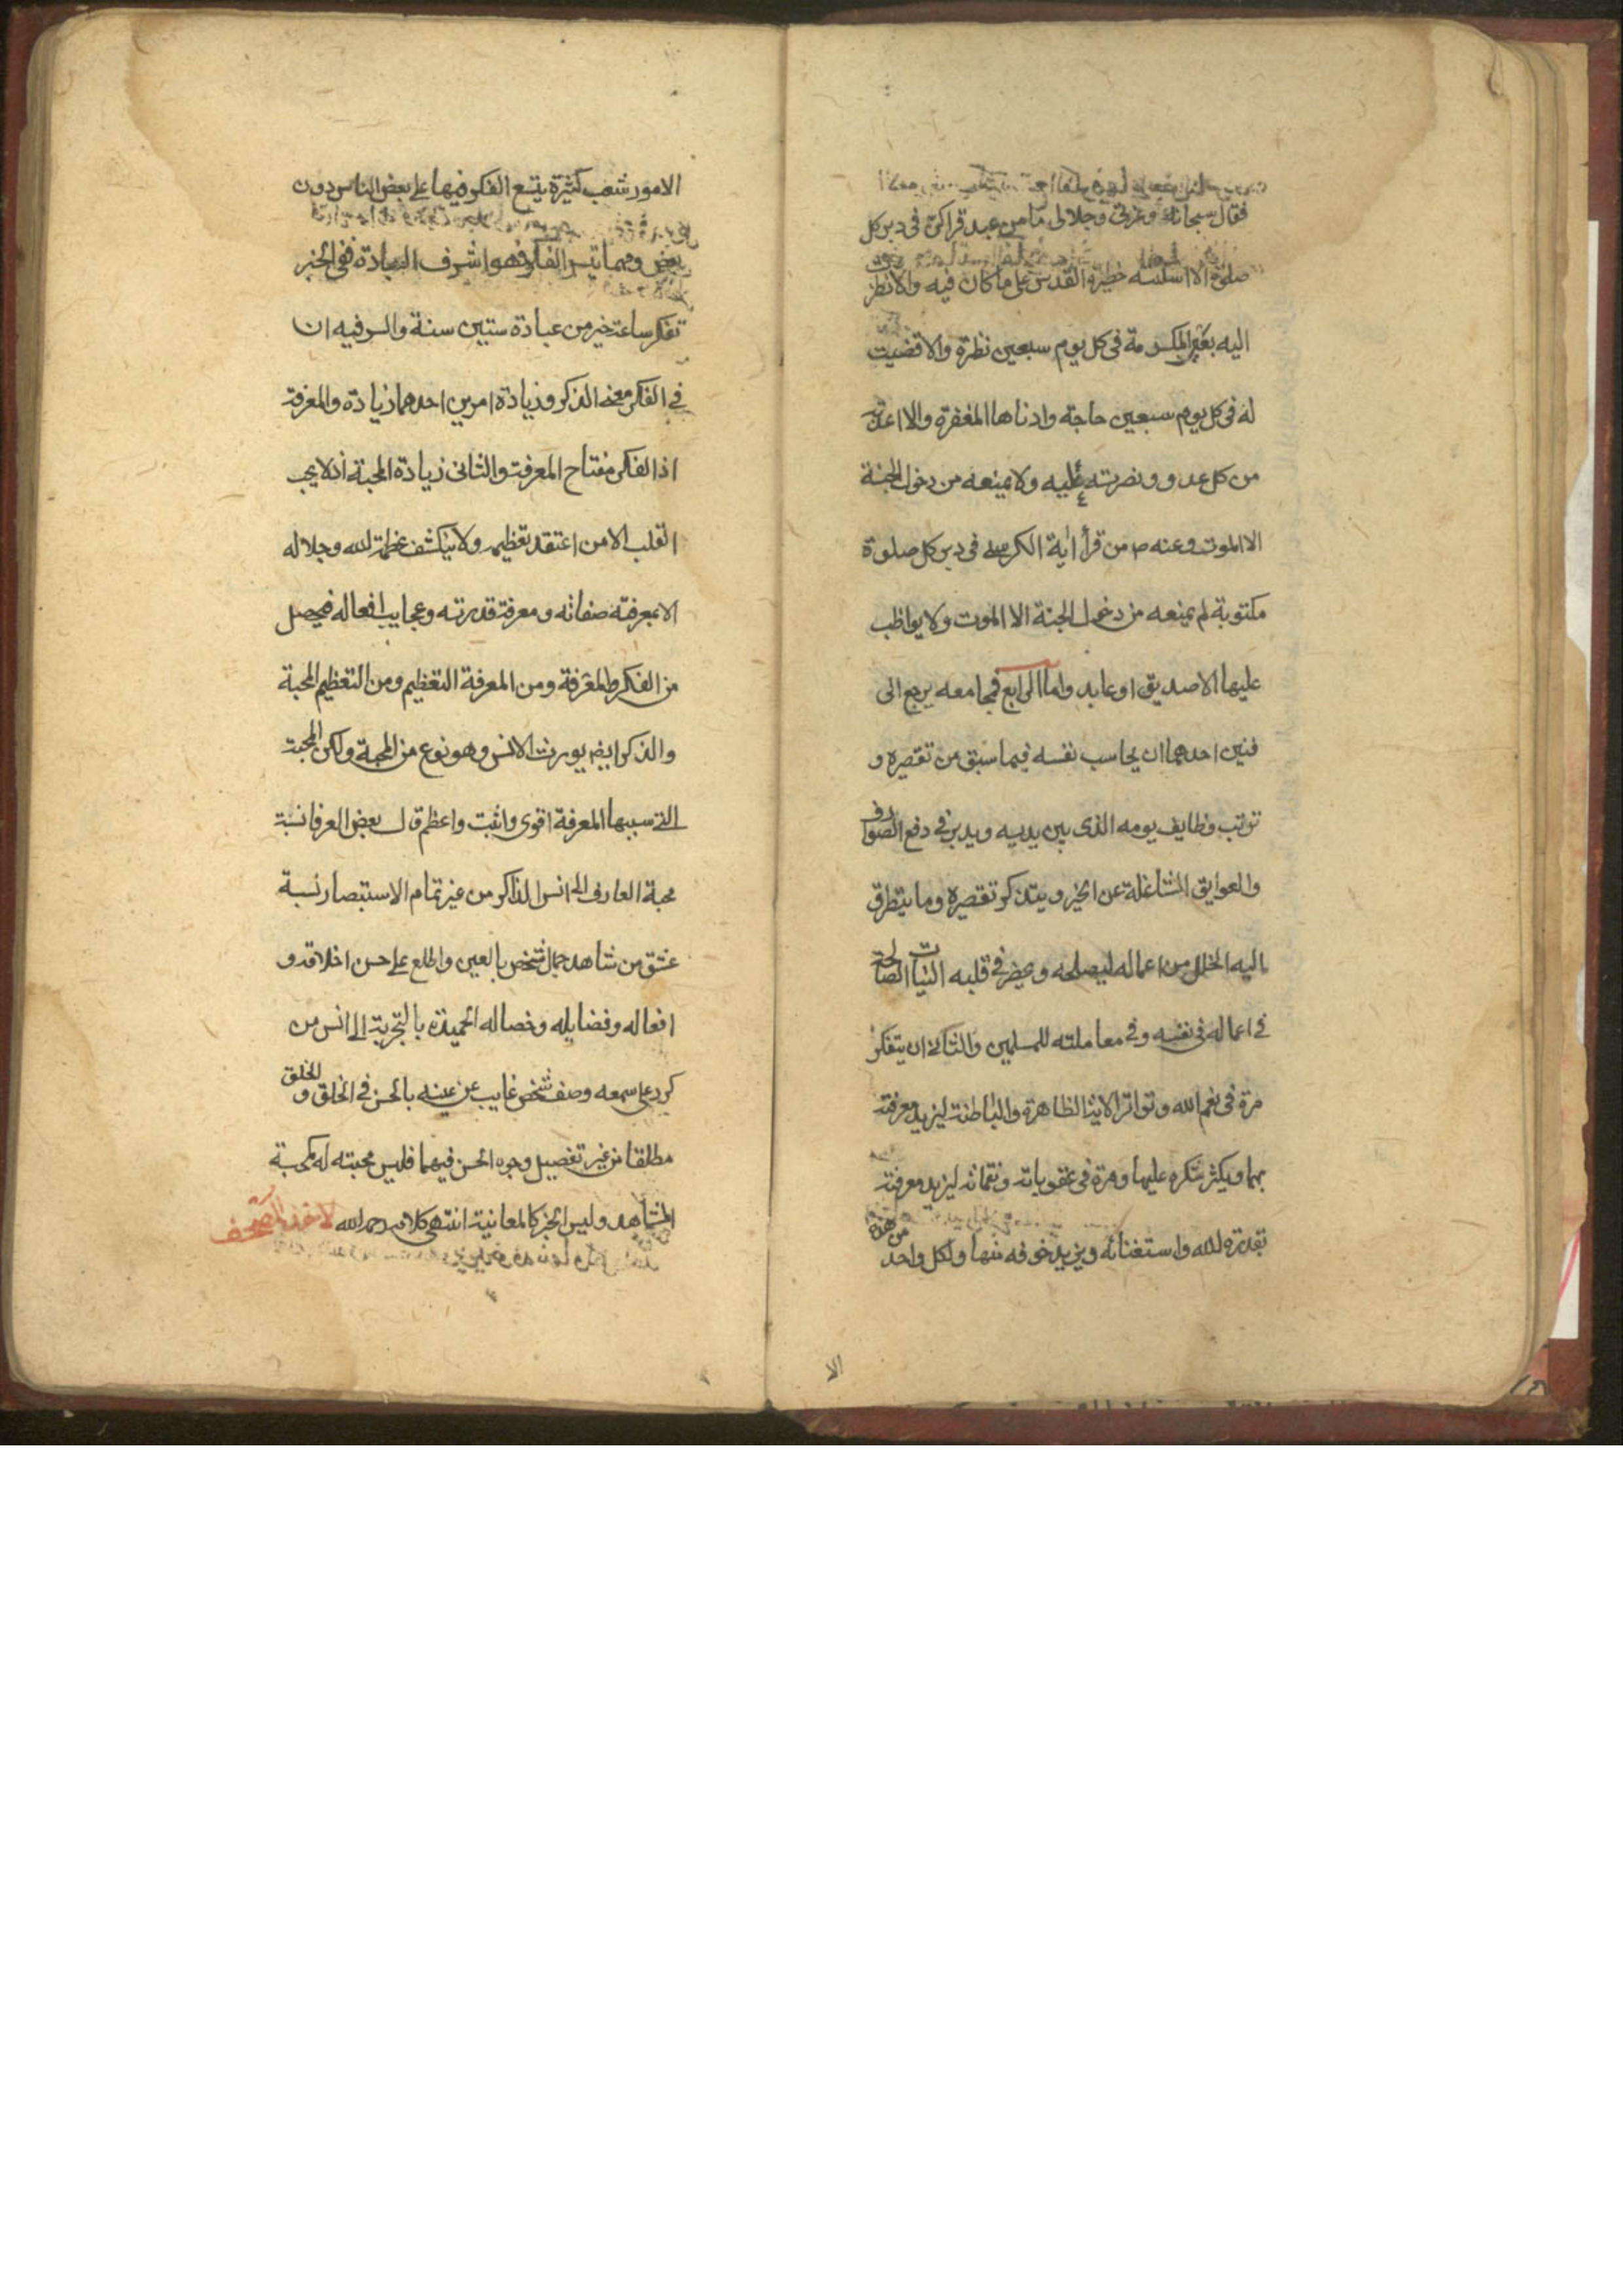 فقال سبحانه وعزتي وجلالي ما من عبد قراكن في دبر كل
صلوة الا اسكنته حظيرة القدس على ما كان فيه والا نظرت
اليه بعين المكرمة في كل يوم سبعين نظرة والا قضيت
له في كل يوم سبعين حاجة وادناها المغفرة والا اعذته
من كل عدو ونصرته عليه ولا يمنعه من دخول الجنة
الا الموت وعنه ص من قرأ اية الكرسي في دبر كل صلوة
مكتوبة لم يمنعه من دخول الجنة الا الموت ولا يواظب
عليها الا صديق او عابد واما الرابع فمجامعه يرجع الى
فنين احدهما ان يحاسب نفسه فيما سبق من تقصيره و
ترتب وظايف يومه الذي بين يديه ويدبر في دفع الصوارف
والعوايق الشاغلة عن الخير ويتذكر تقصيره وما يتطرق
اليه الخلل من اعماله ليصلحه ويحضر في قلبه النيات الصالحة
في اعماله في نفسه وفي معاملته للمسلمين والثاني ان يتفكر
مرة في نعم الله وتواتر الايه الظاهرة والباطنة ليزيد معرفته
بها ويكثر شكره عليها ومرة في عقوباته ونقماته ليزيد معرفته
بقدرة الله واستغنائه ويزيد خوفه منها ولكل واحد من هذه
الا
الامور شعب كثيرة يتسع الفكر فيها على بعض الناس دون
بعض ومهما تيسر الفكر فهو اشرف العبادة ففي الخبر
تفكر ساعة خير من عبادة ستين سنة والسر فيه ان
في الفكر معنى الذكر وزيادة امرين احدهما زيادة والمعرفة
اذ الفكر مفتاح المعرفة والثاني زيادة المحبة اذ لا يحب
القلب الا من اعتقد تعظيمه ولا ينكشف عظمة الله وجلاله
الا بمعرفته صفاته ومعرفة قدرته وعجايب افعاله فيحصل
من الفكر والمعرفة ومن المعرفة التعظيم ومن التعظيم المحبة
والذكر ايضا يورث الانس وهو نوع من المحبة ولكن المحبة
التي سببها المعرفة اقوى واثبت واعظم قال بعض العرفا نسبة
محبة العارف الى انس الذاكر من غير تمام الاستبصار نسبة
عشق من شاهد جمال شخص بالعين واطلع على حسن اخلاقه و
افعاله وفضايله وخصاله الحميدة بالتجربة الى انس من
كرد على سمعه وصف شخص غايب عن عينه بالحسن في الخلق و الخلق
مطلقا من غير تفصيل وجوه الحسن فيهما فليس محبته له كمحبة
المشاهد وليس الخبر كالمعاينة انتهى كلامه رحمه الله